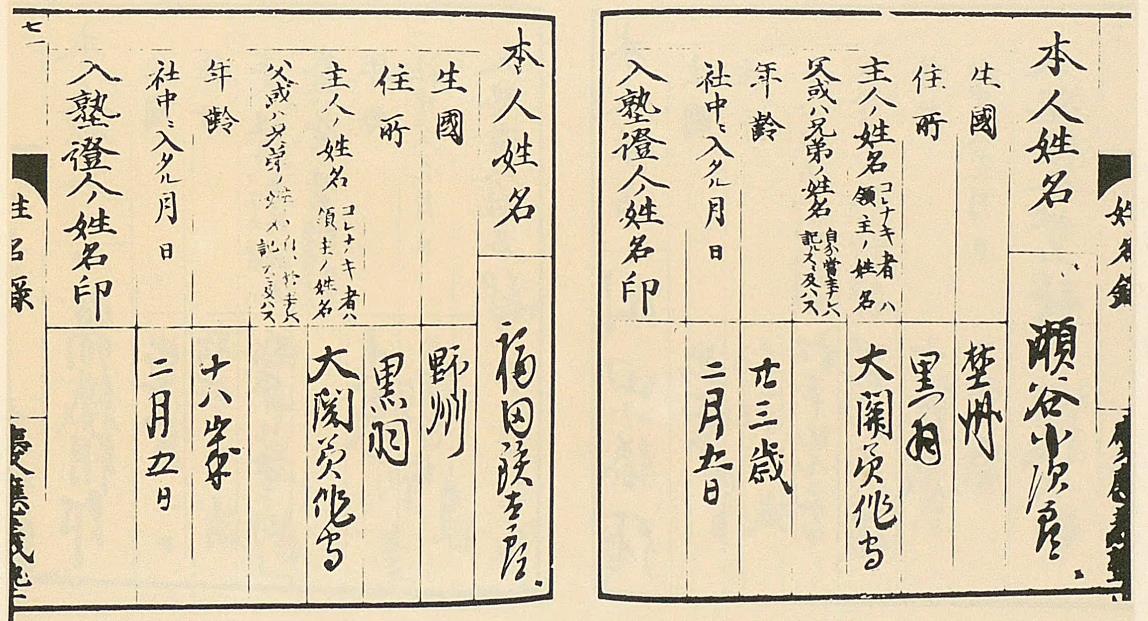 姓名録
本人姓名 瀬谷小次郎
生國 埜州
住所 黒羽
主人ノ姓名 コレナキ者ハ領主ノ姓名 大関美作守
父或ハ兄弟ノ姓名 自分當主ナレハ記スニ及ハス
年齢 廿三歳
社中ニ入タル月日 二月五日
入塾證人ノ姓名印
本人姓名
生國 野州
住所 黒羽
主人ノ姓名 コレナキ者ハ領主ノ姓名 大関美作守
父或ハ兄弟ノ姓名
年齢 十八歳
社中ニ入タル月日 二月五日
入塾證人ノ姓名印
姓名録
慶應義塾
七